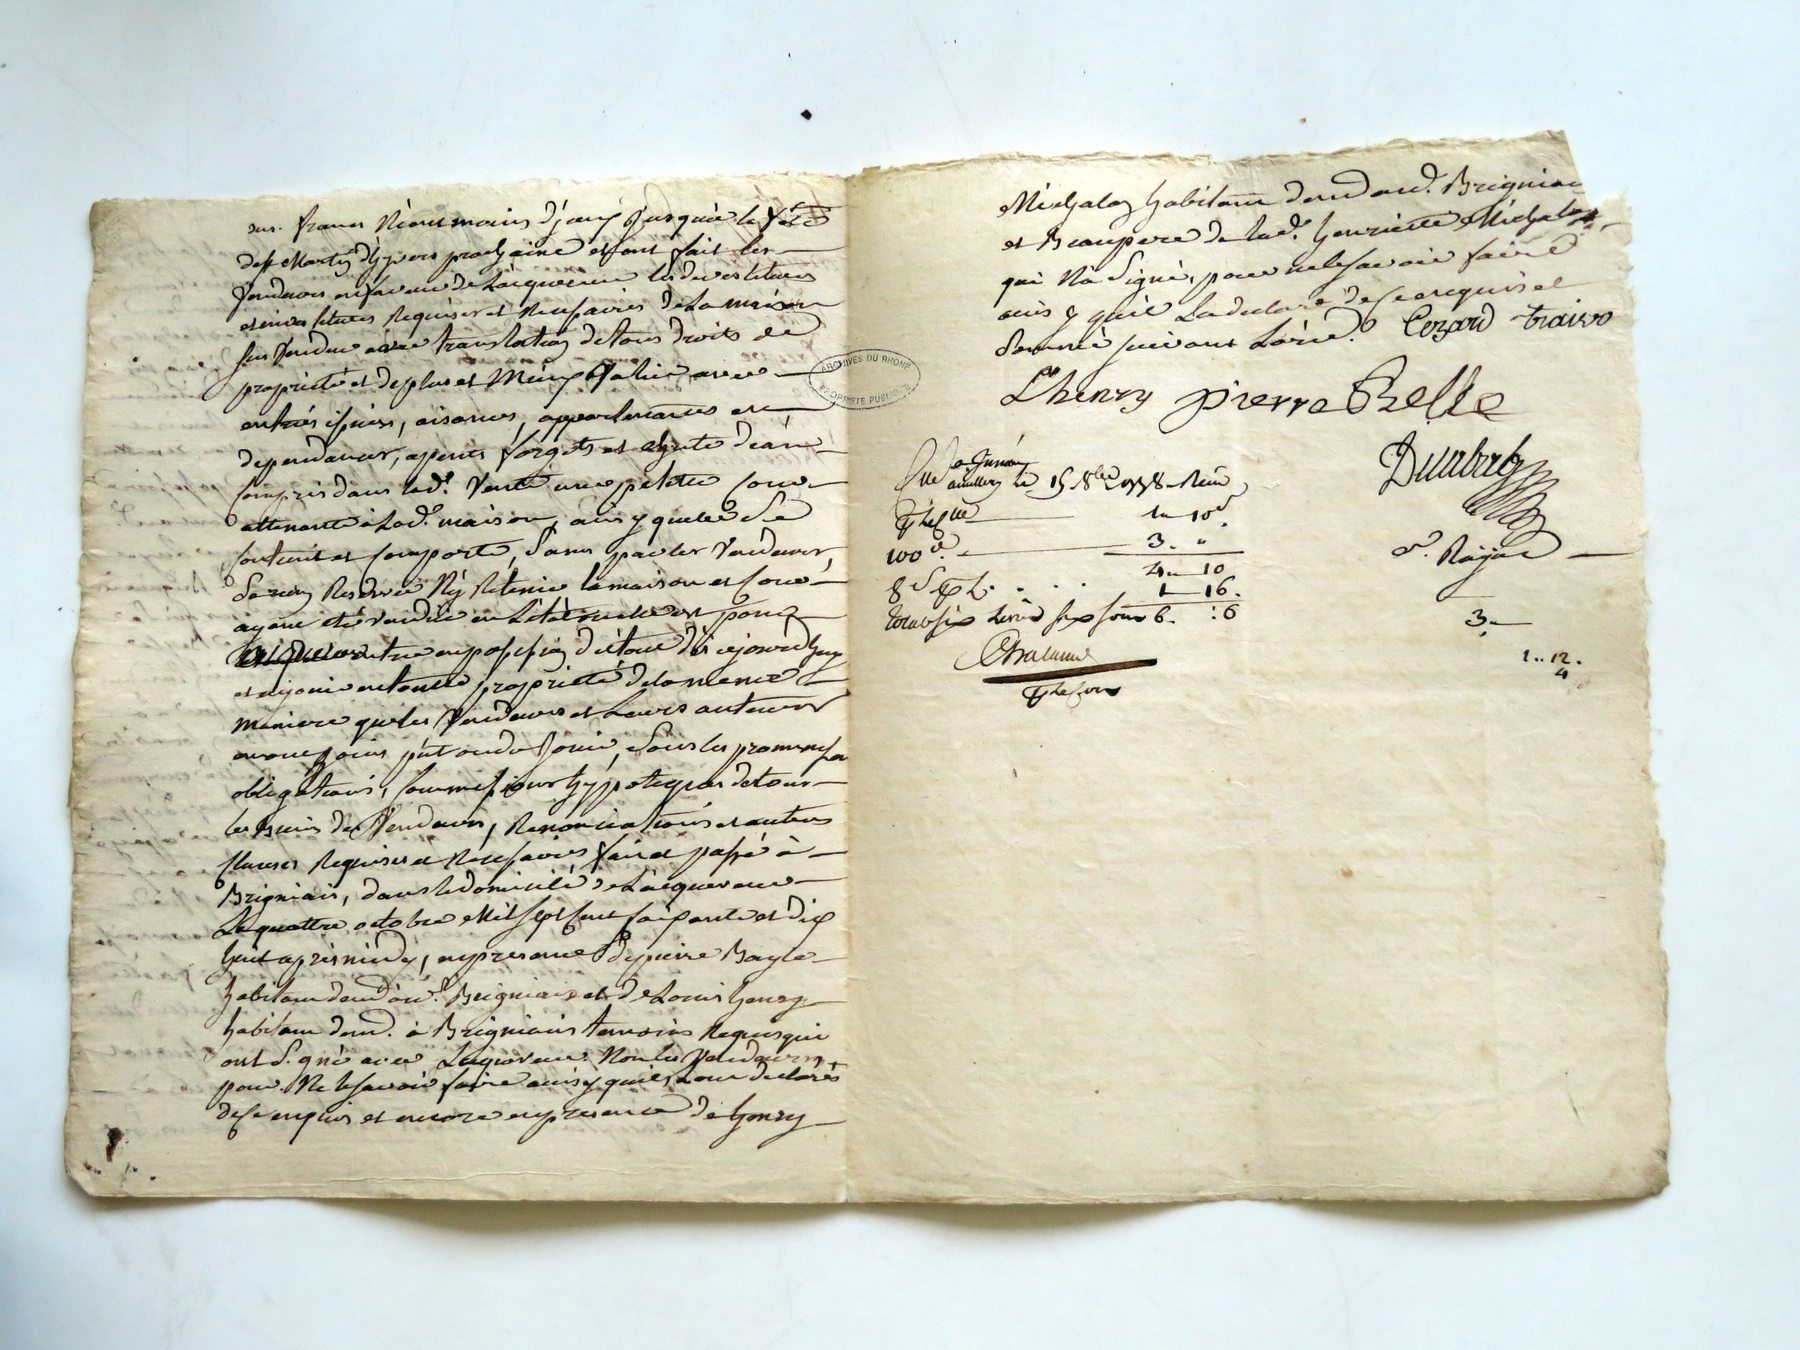 sur. francs Néantmoins d'jcuy Jusqu'a la fête
de St Martin d'hyvers prochaine et ont fait les
Vendeurs en faveur de L'acquereur les devestitures
et investitures Requises et Necessaires de La maison
sus Vendue avec translation de tous droits de
propriété et de plus et Meinx Value avec
entrées issües, aisances, appartenances et
dependances, apents forgets et egoute d'eau
Compris dans lad.e Vente une petite Cour
attenante à Lad.e maison, ainsy que le Se
Contient et Comporte, Sans par les Vendeurs
Se rien Reserver Ny Retenir la maison et Cour
ayant eté Vendue en L'état ou elle est pour
entrer en possession du tout dès cejourd'huy
et en jouir en toutte propriété de la meme
maniere que les Vendeurs et Leurs auteurs
ont jouis put ou du Jouir, Sous les promesses
obligations, Soumissions hyppoteques de tous
les Biens des Vendeurs, Renonciations et autres
Clauses Requises et Necessaires fait et passé à
Brigniais, dans le domicile de L'acquereur
Le quattre octobre Mil Sept Cent soixante et dix
huit après midy, en presence de pierre Bayle
habitant dud. Brigniais et de Louis henry
habitant dem.t à Brigniais temoins Requis qui
ont Signé avec L'aquereur Non les Vendeurs
pour Ne le Savoir faire ainsy qu'ils L'ont declarés
de ce enquis et encore en presence de henry
Michalon habitant dem.t aud. Brigniais
et Beaupere de lad.e henriette Michalon
qui N'a Signé, pour ne le Savoir faire
ainsy qu'il L'a declaré de ce enquis et
Sommé suivant L'ord.e Cezard traivo
L henry pierre Belle
le 15 8bre 1778 Reçu
1 10
100e 3. "
4 10
8 S p L. 1 16.
total six Livres six sous 6. : 6
3
1 .. 12.
4
ARCHIVES DU RHONE
PROPRIETE PUBLIQUE